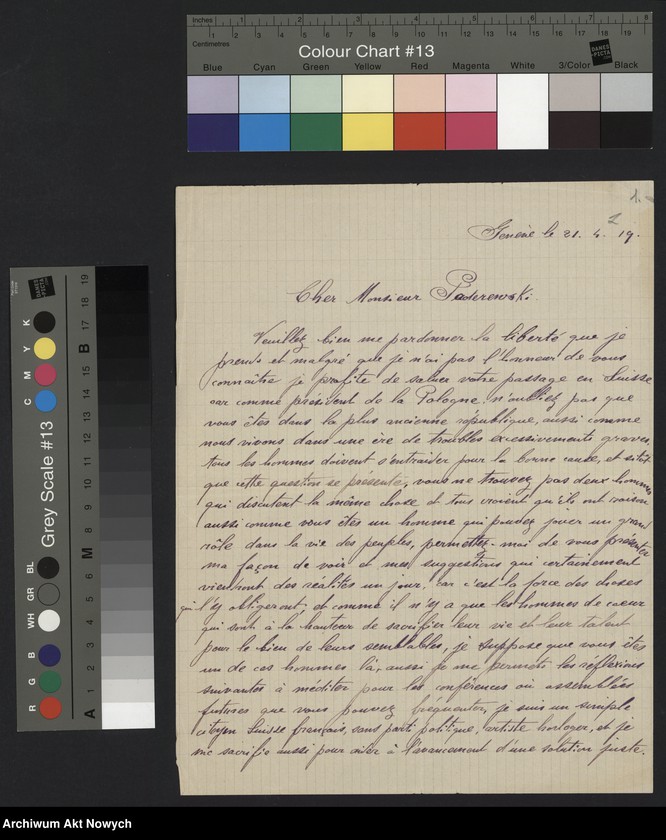 Inches 1 2 3 4 5 6 7 8
Centimetres 1 2 3 4 5 6 7 8 9 10 11 12 13 14 15 16 17 18 19
Colour Chart #13
DANES PICTA .COM
Blue Cyan Green Yellow Red Magenta White 3/Color Black
1.
Genève le 21. 4. 19.
Cher Monsieur Paderewski.
Veuillez bien me pardonner la liberté que je
prends et malgré que je n'ai pas l'honneur de vous
connaître je profite de saluer votre passage en Suisse
car comme président de la Pologne, n'oubliez pas que
vous êtes dans la plus ancienne république, aussi comme
nous vivons dans une ère de troubles excessivements graves,
tous les hommes doivent s'entraider pour la bonne cause, et sitôt
que cette question se présente, vous ne trouvez pas deux hommes
qui discutent la même chose et tous croient qu'ils ont raison
aussi comme vous êtes un homme qui pouvez jouer un grand
rôle dans la vie des peuples, permettez-moi de vous présenter
ma façon de voir et mes suggestions qui certainement
viendront des réalités un jour, car c'est la force des choses
qui l'y obligeront, et comme il n'y a que les hommes de cœur
qui sont à la hauteur de sacrifier leur vie et leur talent
pour le bien de leurs semblables, je suppose que vous êtes
un de ces hommes là, aussi je me permets les réflexions
suivantes à méditer pour les conférences où assemblées
futures que vous pouvez fréquenter, je suis un simple
citoyen Suisse français, sans parti politique, artiste horloger, et je
me sacrifie aussi pour aider à l'avancement d'une solution juste.
Grey Scale #13
C M Y K
R G B WH GR BL
A 1 2 3 4 5 6 M 8 9 10 11 12 13 14 15 B 17 18 19
DANES PICTA .COM
Archiwum Akt Nowych